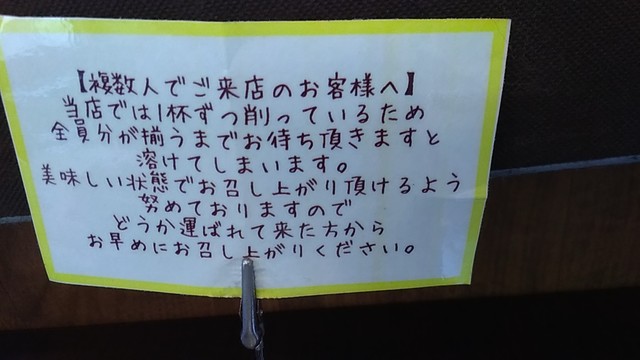 【複数人でご来店のお客様へ】
当店では1杯ずつ削っているため
全員分が揃うまでお待ち頂きますと
溶けてしまいます。
美味しい状態でお召し上がり頂けるよう
努めておりますので
どうか運ばれて来た方から
お早めにお召し上がりください。